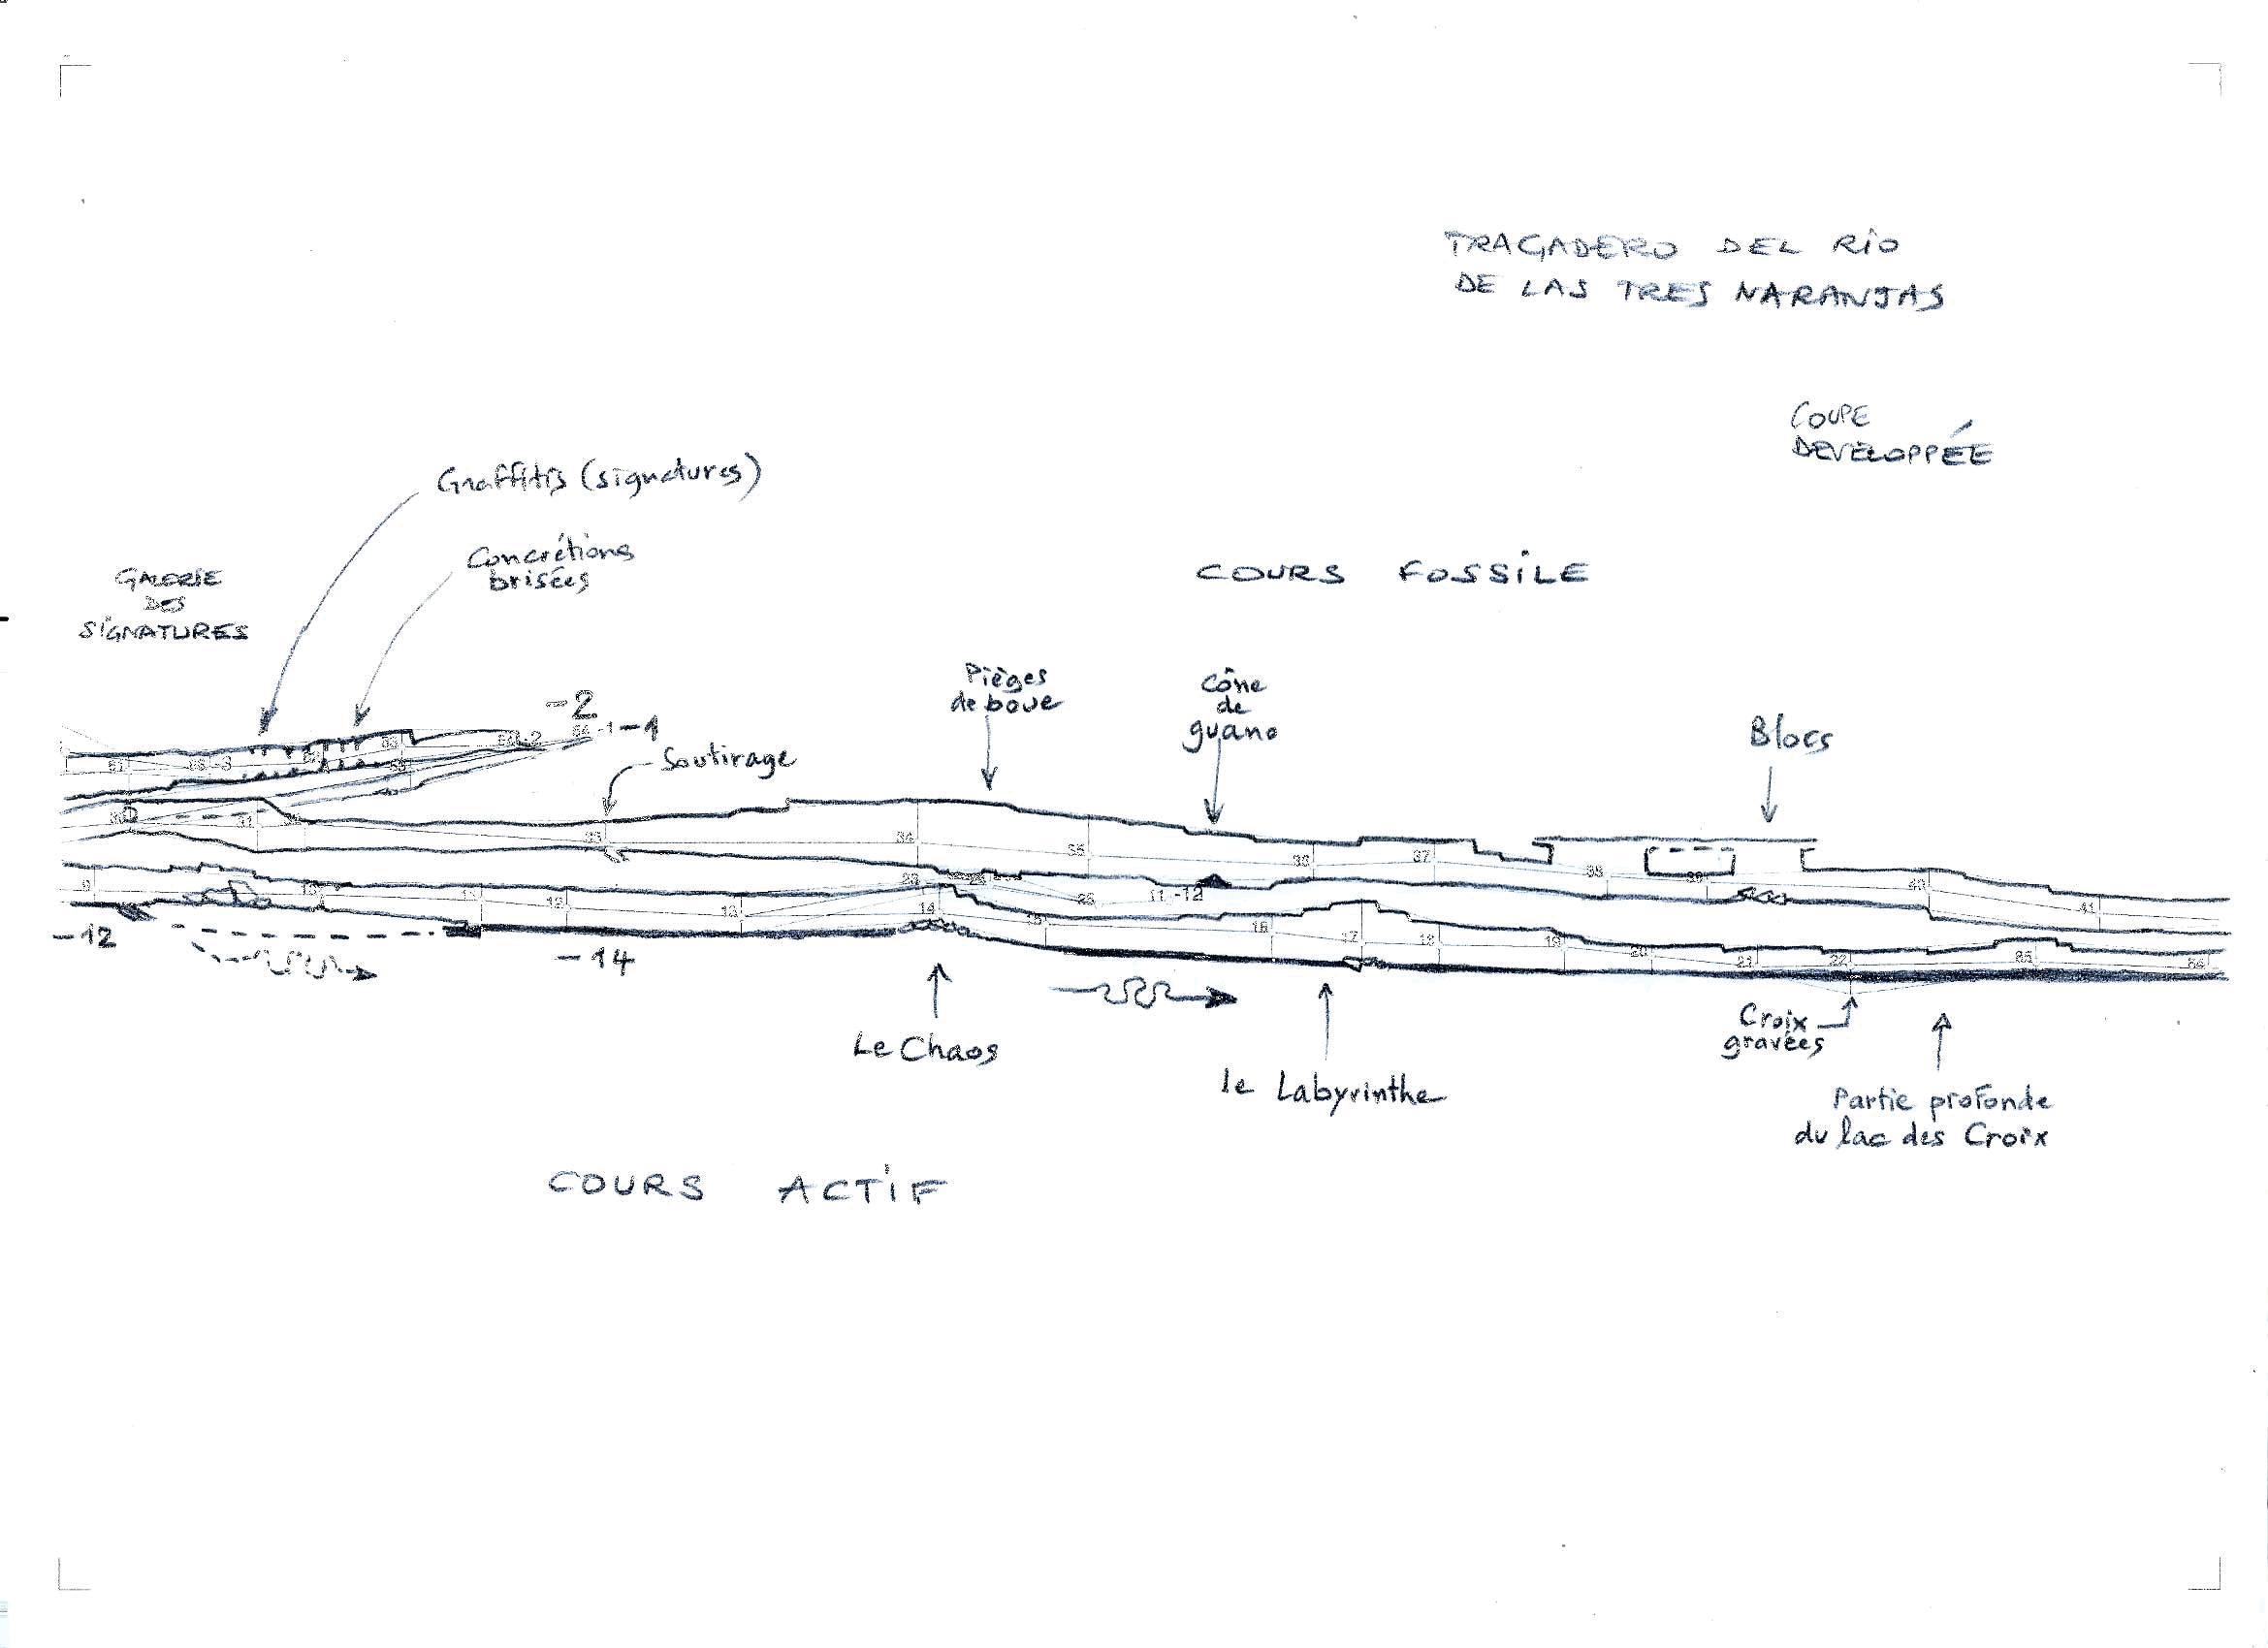 TRAGADERO DEL RÍO
DE LAS TRES NARANJAS
COUPE
DEVELOPPÉE
Graffitis (signatures)
Concrétions
brisées
GALERIE
DES
SIGNATURES
COURS FOSSILE
-2
-1
Soutirage
Pièges
de boue
Cône
de
guano
Blocs
31
34
35
36
37
38
39
40
41
9
11
12
13
14
15
16
17
18
19
20
21
22
-12
-12
-14
Le Chaos
le Labyrinthe
Croix
gravées
Partie profonde
du lac des Croix
COURS ACTIF